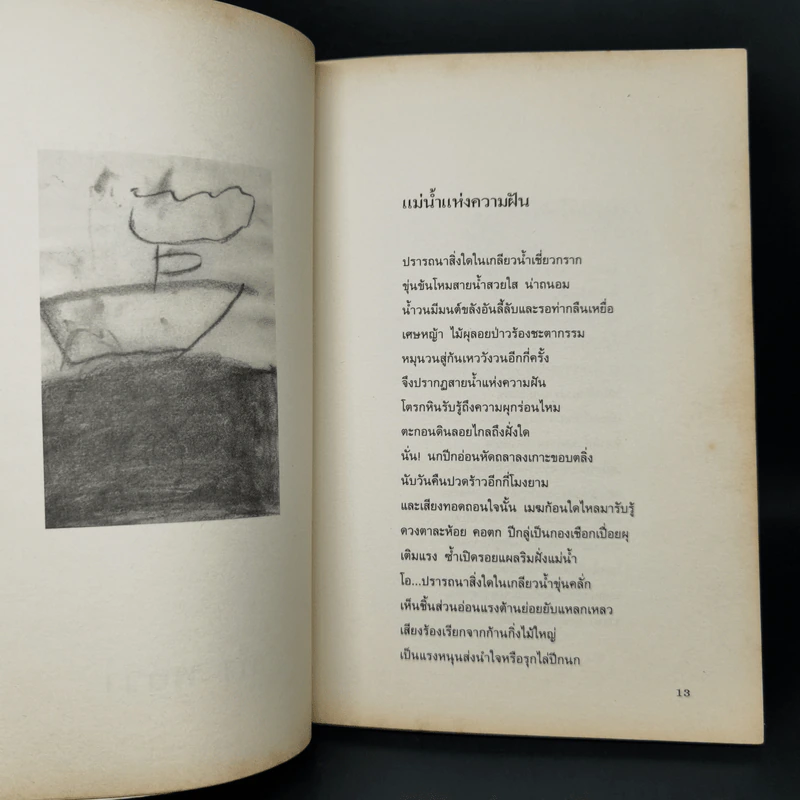 แม่น้ำแห่งความฝัน
ปรารถนาสิ่งใดในเกลียวน้ำเชี่ยวกราก
ขุ่นข้นโหมสายน้ำสวยใส น่าถนอม
น้ำวนมีมนต์ขลังอันลี้ลับและรอท่ากลืนเหยื่อ
เศษหญ้า ไม้ผุลอยป่าวร้องชะตากรรม
หมุนวนสู่ก้นเหววังวนอีกกี่ครั้ง
จึงปรากฏสายน้ำแห่งความฝัน
โตรกหินรับรู้ถึงความผุกร่อนไหม
ตะกอนดินลอยไกลถึงฝั่งใด
นั่น! นกปีกอ่อนหัดถลาลงเกาะขอบตลิ่ง
นับวันคืนปวดร้าวอีกกี่โมงยาม
และเสียงทอดถอนใจนั้น เมฆก้อนใดไหลมารับรู้
ดวงตาละห้อย คอตก ปีกลู่เป็นกองเชือกเปื่อยผุ
เติมแรง ซ้ำเปิดรอยแผลริมฝั่งแม่น้ำ
โอ...ปรารถนาสิ่งใดในเกลียวน้ำขุ่นคลั่ก
เห็นชิ้นส่วนอ่อนแรงต้านย่อยยับแหลกเหลว
เสียงร้องเรียกจากก้านกิ่งไม้ใหญ่
เป็นแรงหนุนส่งนำใจหรือรุกไล่ปีกนก
13